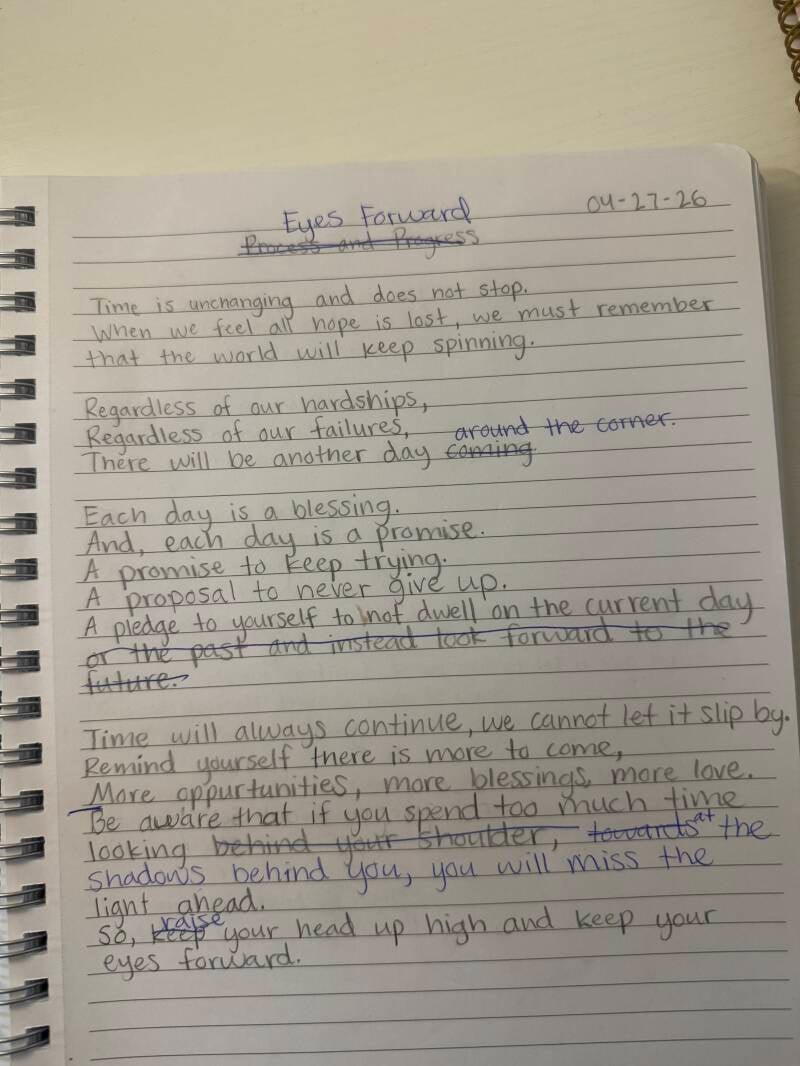 Eyes Forward
04-27-26
Process and Progress
Time is unchanging and does not stop.
When we feel all hope is lost, we must remember
that the world will keep spinning.
Regardless of our hardships,
Regardless of our failures,
around the corner.
There will be another day coming.
Each day is a blessing.
And, each day is a promise.
A promise to keep trying.
A proposal to never give up.
A pledge to yourself to not dwell on the current day
or the past and instead look forward to the
future.
Time will always continue, we cannot let it slip by.
Remind yourself there is more to come,
More oppurtunities, more blessings, more love.
Be aware that if you spend too much time
looking behind your shoulder, towards at the
shadows behind you, you will miss the
light ahead.
raise
So, keep your head up high and keep your
eyes forward.